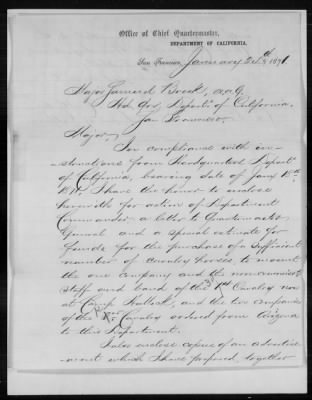 Office of Chief Quartermaster,
DEPARTMENT OF CALIFORNIA,
San Francisco, January 24th 1871.
Major
Hd. Qrs. Departt. of California,
San Francisco
Major,
In compliance with in-
structions from Headquarters Departt
of California, bearing date of Jany 18th
1871, I have the honor to enclose
herewith for action of Department
Commander a letter to Quartermaster
General and a special estimate for
funds for the purchase of a sufficient
number of Cavalry horses to mount
the one company and the non-commissd
staff and band of the Cavalry now
at Camp Halleck, and the two companies
of the Cavalry ordered from Arizona
to this Department.
I also enclose copies of an advertise-
ment which I have prepared, together